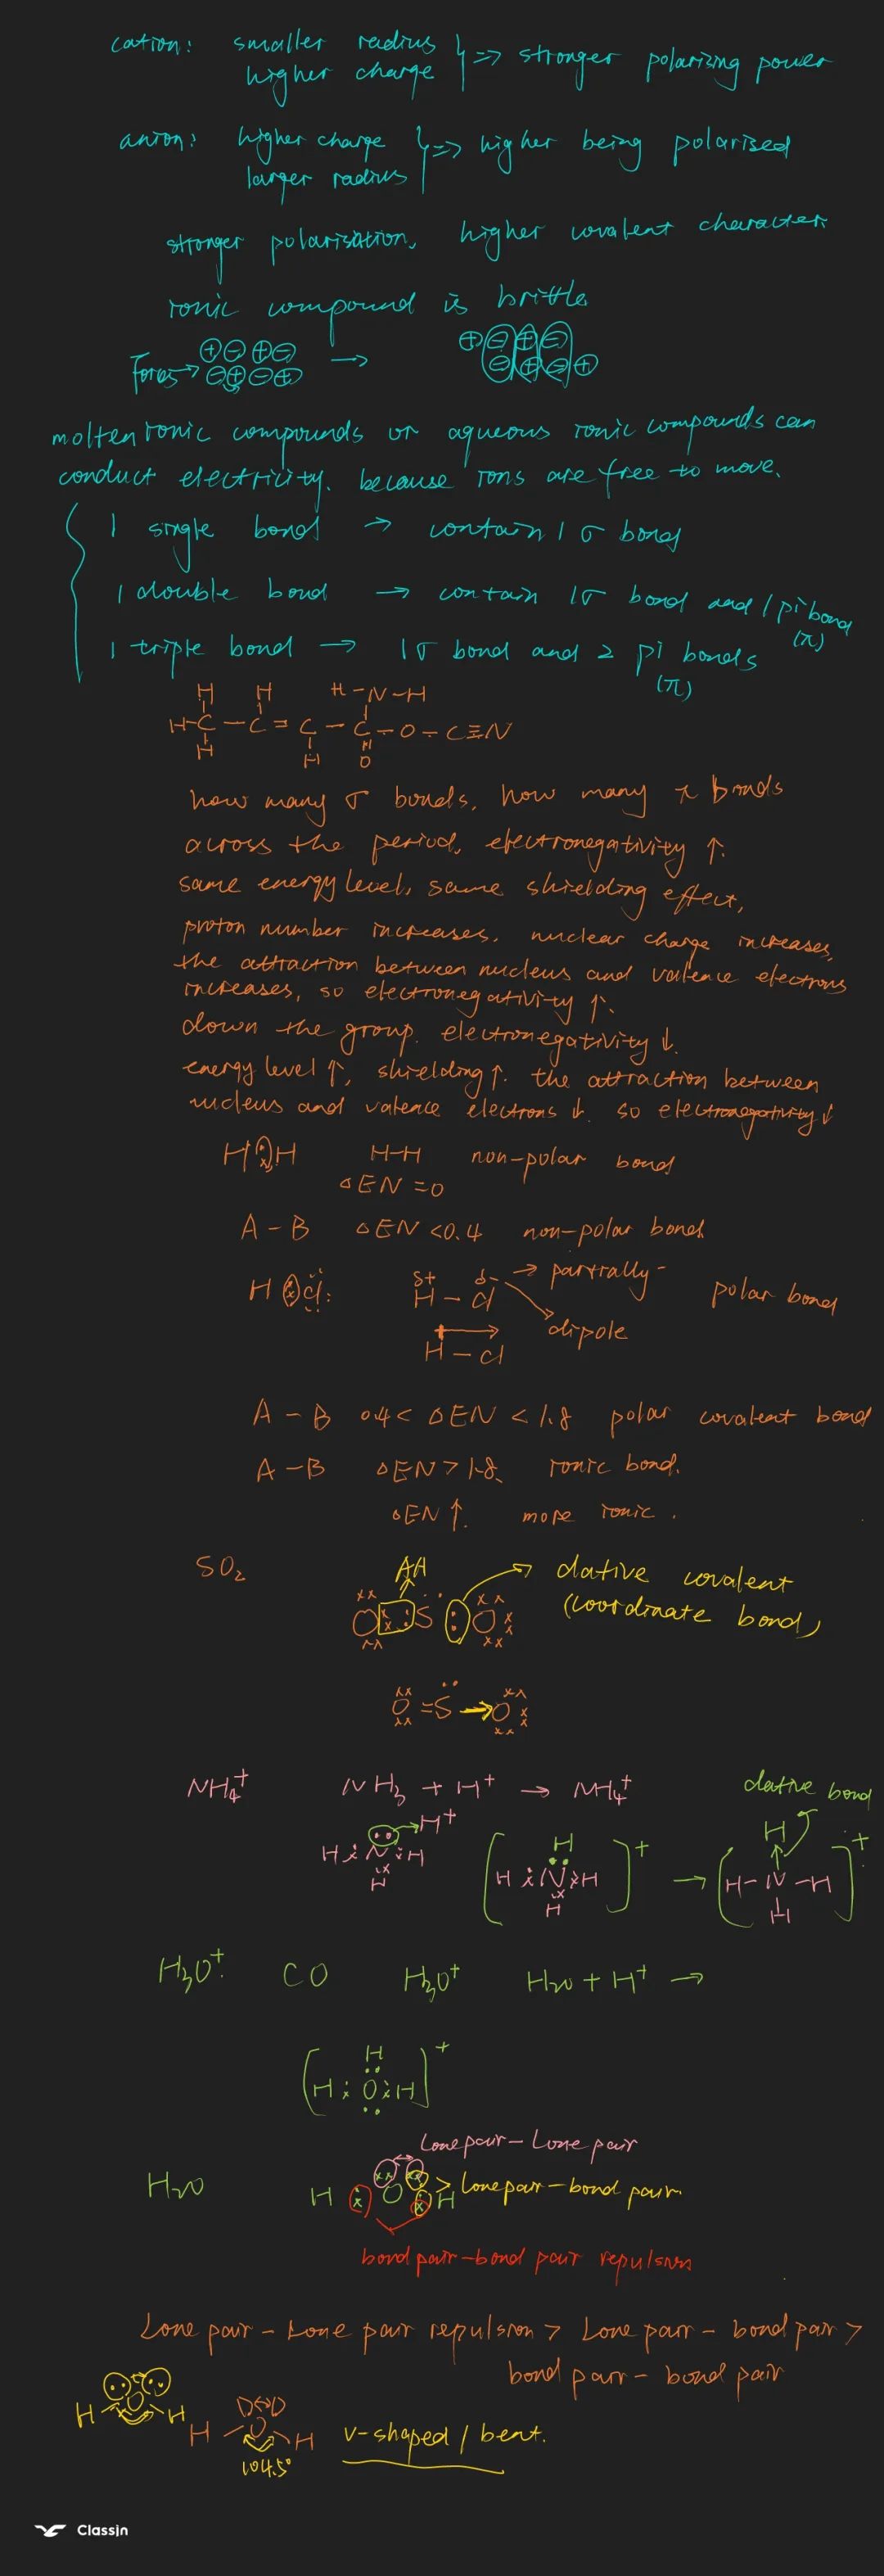 cation: smaller radius
higher charge } => stronger polarizing power
anion: higher charge
larger radius } => higher being polarised
stronger polarisation, higher covalent character.
ionic compound is brittle
Forces → ⊕⊖⊕⊖ → ⊕⊖⊕⊖
⊖⊕⊖⊕ ⊖⊕⊖⊕
molten ionic compounds or aqueous ionic compounds can
conduct electricity. because ions are free to move.
1 single bond → contain 1 σ bond
1 double bond → contain 1σ bond and 1 pi bond
(π)
1 triple bond → 1σ bond and 2 pi bonds
(π)
H H H-N-H
H-C-C=C-C-O-C≡N
H H O
how many σ bonds. how many π bonds
across the period, electronegativity ↑.
same energy level, same shielding effect,
proton number increases. nuclear charge increases,
the attraction between nucleus and valence electrons
increases, so electronegativity ↑.
down the group. electronegativity ↓.
energy level ↑, shielding ↑. the attraction between
nucleus and valence electrons ↓. so electronegativity ↓
H H H-H non-polar bond
ΔEN = 0
A - B ΔEN < 0.4 non-polar bond
H Cl δ+ δ- → partially -
H - Cl polar bond
dipole
H - Cl
A - B 0.4 < ΔEN < 1.8 polar covalent bond
A - B ΔEN > 1.8 ionic bond.
ΔEN ↑. more ionic.
SO₂
O S O dative covalent
(coordinate bond)
O = S → O
NH₄⁺ NH₃ + H⁺ → NH₄⁺ dative bond
H N H H⁺ [H N H]⁺ → [H-N-H]⁺
H H H H H
H₃O⁺. CO H₃O⁺ H₂O + H⁺ →
H
[H O H]⁺
Lone pair - Lone pair
H₂O H O H > lone pair - bond pair.
bond pair - bond pair repulsion
Lone pair - Lone pair repulsion > Lone pair - bond pair >
bond pair - bond pair
H O H
H O H v-shaped / bent.
104.5°
ClassIn